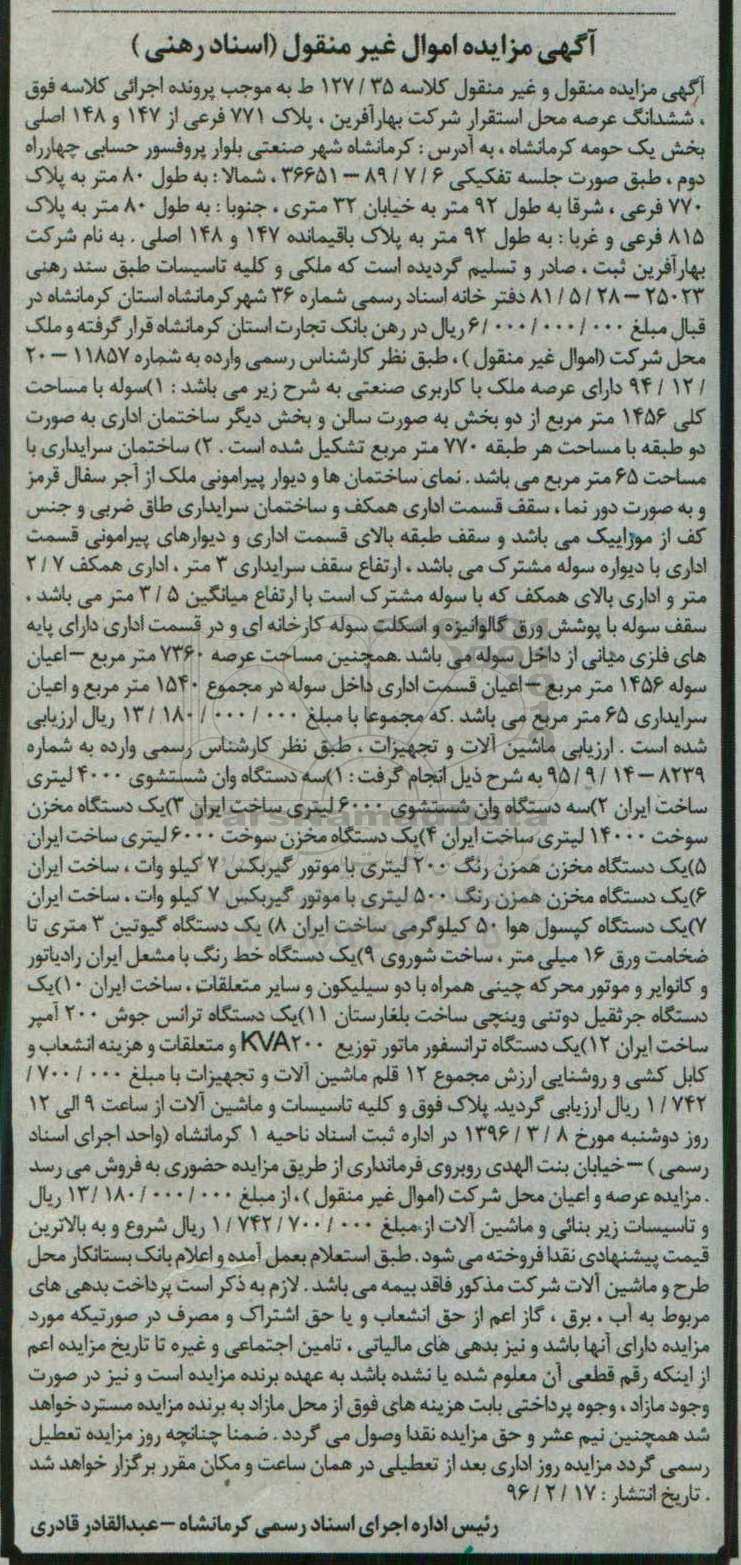 آگهی مزایده اموال غیر منقول (اسناد رهنی )
آگهی مزایده منقول و غیر منقول کلاسه ۳۵ / ۱۲۷ ط به موجب پرونده اجرائی کلاسه فوق
، ششدانگ عرصه محل استقرار شرکت بهارآفرین ، پلاک ۷۷۱ فرعی از ۱۴۷ و ۱۴۸ اصلی
بخش یک حومه کرمانشاه ، به آدرس : کرمانشاه شهر صنعتی بلوار پروفسور حسابی چهارراه
دوم ، طبق صورت جلسه تفکیکی ۶ / ۷ / ۸۹ – ۳۶۶۵۱ ، شمالا : به طول ۸۰ متر به پلاک
۷۷۰ فرعی ، شرقا به طول ۹۲ متر به خیابان ۳۲ متری ، جنوبا : به طول ۸۰ متر به پلاک
۸۱۵ فرعی و غربا : به طول ۹۲ متر به پلاک باقیمانده ۱۴۷ و ۱۴۸ اصلی . به نام شرکت
بهارآفرین ثبت ، صادر و تسلیم گردیده است که ملکی و کلیه تاسیسات طبق سند رهنی
۲۵۰۲۳ – ۲۸ / ۵ / ۸۱ دفتر خانه اسناد رسمی شماره ۳۶ شهرکرمانشاه استان کرمانشاه در
قبال مبلغ ۰۰۰ / ۰۰۰ / ۰۰۰ /۶ ریال در رهن بانک تجارت استان کرمانشاه قرار گرفته و ملک
محل شرکت (اموال غیر منقول ) ، طبق نظر کارشناس رسمی وارده به شماره ۱۱۸۵۷ – ۲۰
/ ۱۲ / ۹۴ دارای عرصه ملک با کاربری صنعتی به شرح زیر می باشد : ۱)سوله با مساحت
کلی ۱۴۵۶ متر مربع از دو بخش به صورت سالن و بخش دیگر ساختمان اداری به صورت
دو طبقه با مساحت هر طبقه ۷۷۰ متر مربع تشکیل شده است . ۲) ساختمان سرایداری با
مساحت ۶۵ متر مربع می باشد . نمای ساختمان ها و دیوار پیرامونی ملک از آجر سفال قرمز
و به صورت دور نما ، سقف قسمت اداری همکف و ساختمان سرایداری طاق ضربی و جنس
کف از موزاییک می باشد و سقف طبقه بالای قسمت اداری و دیوارهای پیرامونی قسمت
اداری با دیواره سوله مشترک می باشد ، ارتفاع سقف سرایداری ۳ متر ، اداری همکف ۷ / ۲
متر و اداری بالای همکف که با سوله مشترک است با ارتفاع میانگین ۵ / ۳ متر می باشد ،
سقف سوله با پوشش ورق گالوانیزه و اسکلت سوله کارخانه ای و در قسمت اداری دارای پایه
های فلزی میانی از داخل سوله می باشد .همچنین مساحت عرصه ۷۳۶۰ متر مربع –اعیان
سوله ۱۴۵۶ متر مربع –اعیان قسمت اداری داخل سوله در مجموع ۱۵۴۰ متر مربع و اعیان
سرایداری ۶۵ متر مربع می باشد .که مجموعا با مبلغ ۰۰۰ / ۰۰۰ / ۱۸۰ / ۱۳ ریال ارزیابی
شده است . ارزیابی ماشین آلات و تجهیزات ، طبق نظر کارشناس رسمی وارده به شماره
۸۲۳۹ – ۱۴ / ۹ / ۹۵ به شرح ذیل انجام گرفت : ۱)سه دستگاه وان شستشوی ۴۰۰۰ لیتری
ساخت ایران ۲)سه دستگاه وان شستشوی ۶۰۰۰ لیتری ساخت ایران ۳)یک دستگاه مخزن
سوخت ۱۴۰۰۰ لیتری ساخت ایران ۴)یک دستگاه مخزن سوخت ۶۰۰۰ لیتری ساخت ایران
۵)یک دستگاه مخزن همزن رنگ ۲۰۰ لیتری با موتور گیربکس ۷ کیلو وات ، ساخت ایران
۶)یک دستگاه مخزن همزن رنگ ۵۰۰ لیتری با موتور گیربکس ۷ کیلو وات ، ساخت ایران
۷)یک دستگاه کپسول هوا ۵۰ کیلوگرمی ساخت ایران ۸) یک دستگاه گیوتین ۳ متری تا
ضخامت ورق ۱۶ میلی متر ، ساخت شوروی ۹)یک دستگاه خط رنگ با مشعل ایران رادیاتور
و کانوایر و موتور محرکه چینی همراه با دو سیلیکون و سایر متعلقات ، ساخت ایران ۱۰)یک
دستگاه جرثقیل دوتنی وینچی ساخت بلغارستان ۱۱)یک دستگاه ترانس جوش ۲۰۰ آمپر
ساخت ایران ۱۲)یک دستگاه ترانسفور ماتور توزیع KVA۲۰۰ و متعلقات و هزینه انشعاب و
کابل کشی و روشنایی ارزش مجموع ۱۲ قلم ماشین آلات و تجهیزات با مبلغ ۰۰۰ / ۷۰۰ /
۷۴۲ / ۱ ریال ارزیابی گردید. پلاک فوق و کلیه تاسیسات و ماشین آلات از ساعت ۹ الی ۱۲
روز دوشنبه مورخ ۸ / ۳ / ۱۳۹۶ در اداره ثبت اسناد ناحیه ۱ کرمانشاه (واحد اجرای اسناد
رسمی ) –خیابان بنت الهدی روبروی فرمانداری از طریق مزایده حضوری به فروش می رسد
. مزایده عرصه و اعیان محل شرکت (اموال غیر منقول ) ، از مبلغ ۰۰۰ / ۰۰۰ / ۱۸۰ / ۱۳ ریال
و تاسیسات زیر بنائی و ماشین آلات از مبلغ ۰۰۰ / ۷۰۰ / ۷۴۲ / ۱ ریال شروع و به بالاترین
قیمت پیشنهادی نقدا فروخته می شود . طبق استعلام بعمل آمده و اعلام بانک بستانکار محل
طرح و ماشین آلات شرکت مذکور فاقد بیمه می باشد . لازم به ذکر است پرداخت بدهی های
مربوط به آب ، برق ، گاز اعم از حق انشعاب و یا حق اشتراک و مصرف در صورتیکه مورد
مزایده دارای آنها باشد و نیز بدهی های مالیاتی ، تامین اجتماعی و غیره تا تاریخ مزایده اعم
از اینکه رقم قطعی آن معلوم شده یا نشده باشد به عهده برنده مزایده است و نیز در صورت
وجود مازاد ، وجوه پرداختی بابت هزینه های فوق از محل مازاد به برنده مزایده مسترد خواهد
شد همچنین نیم عشر و حق مزایده نقدا وصول می گردد . ضمنا چنانچه روز مزایده تعطیل
رسمی گردد مزایده روز اداری بعد از تعطیلی در همان ساعت و مکان مقرر برگزار خواهد شد
. تاریخ انتشار : ۱۷ / ۲ / ۹۶
رئیس اداره اجرای اسناد رسمی کرمانشاه –عبدالقادر قادری